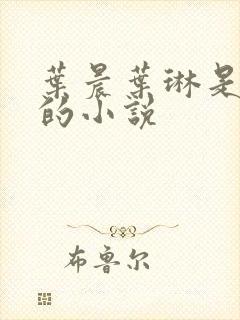 葉晨葉琳是
的小說
布鲁尔